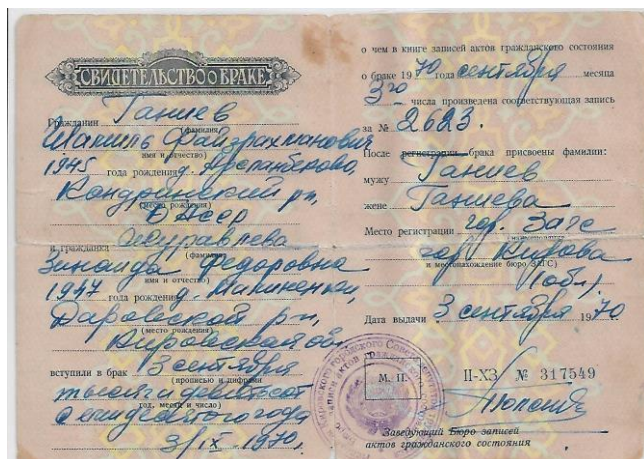 СВИДЕТЕЛЬСТВО О БРАКЕ
Гражданин Ганиев
(фамилия)
Шамиль Файзрахманович
имя и отчество)
1945 года рождения д. Арсланбеково
Кандринский р-н,
(место рождения)
БАССР
и гражданка Журавлева
(фамилия)
Зинаида Федоровна
имя и отчество)
1947 года рождения д.
Даровской р-н,
(место рождения)
Кировская обл.
вступили в брак 3 сентября
(прописью и цифрами
тысяча девятьсот
год, месяц и число)
семидесятого года
3/IX 1970г.
о чем в книге записей актов гражданского состояния
о браке 1970 года сентября месяца
3го числа произведена соответствующая запись
за № 2623.
После регистрации брака присвоены фамилии:
мужу Ганиев
жене Ганиева
Место регистрации гор. Загс
гор Кирова
и местонахождение бюро ЗАГС)
(обл)
Дата выдачи 3 сентября 1970
М. П.
II-ХЗ № 317549
Заведующий Бюро записей
актов гражданского состояния